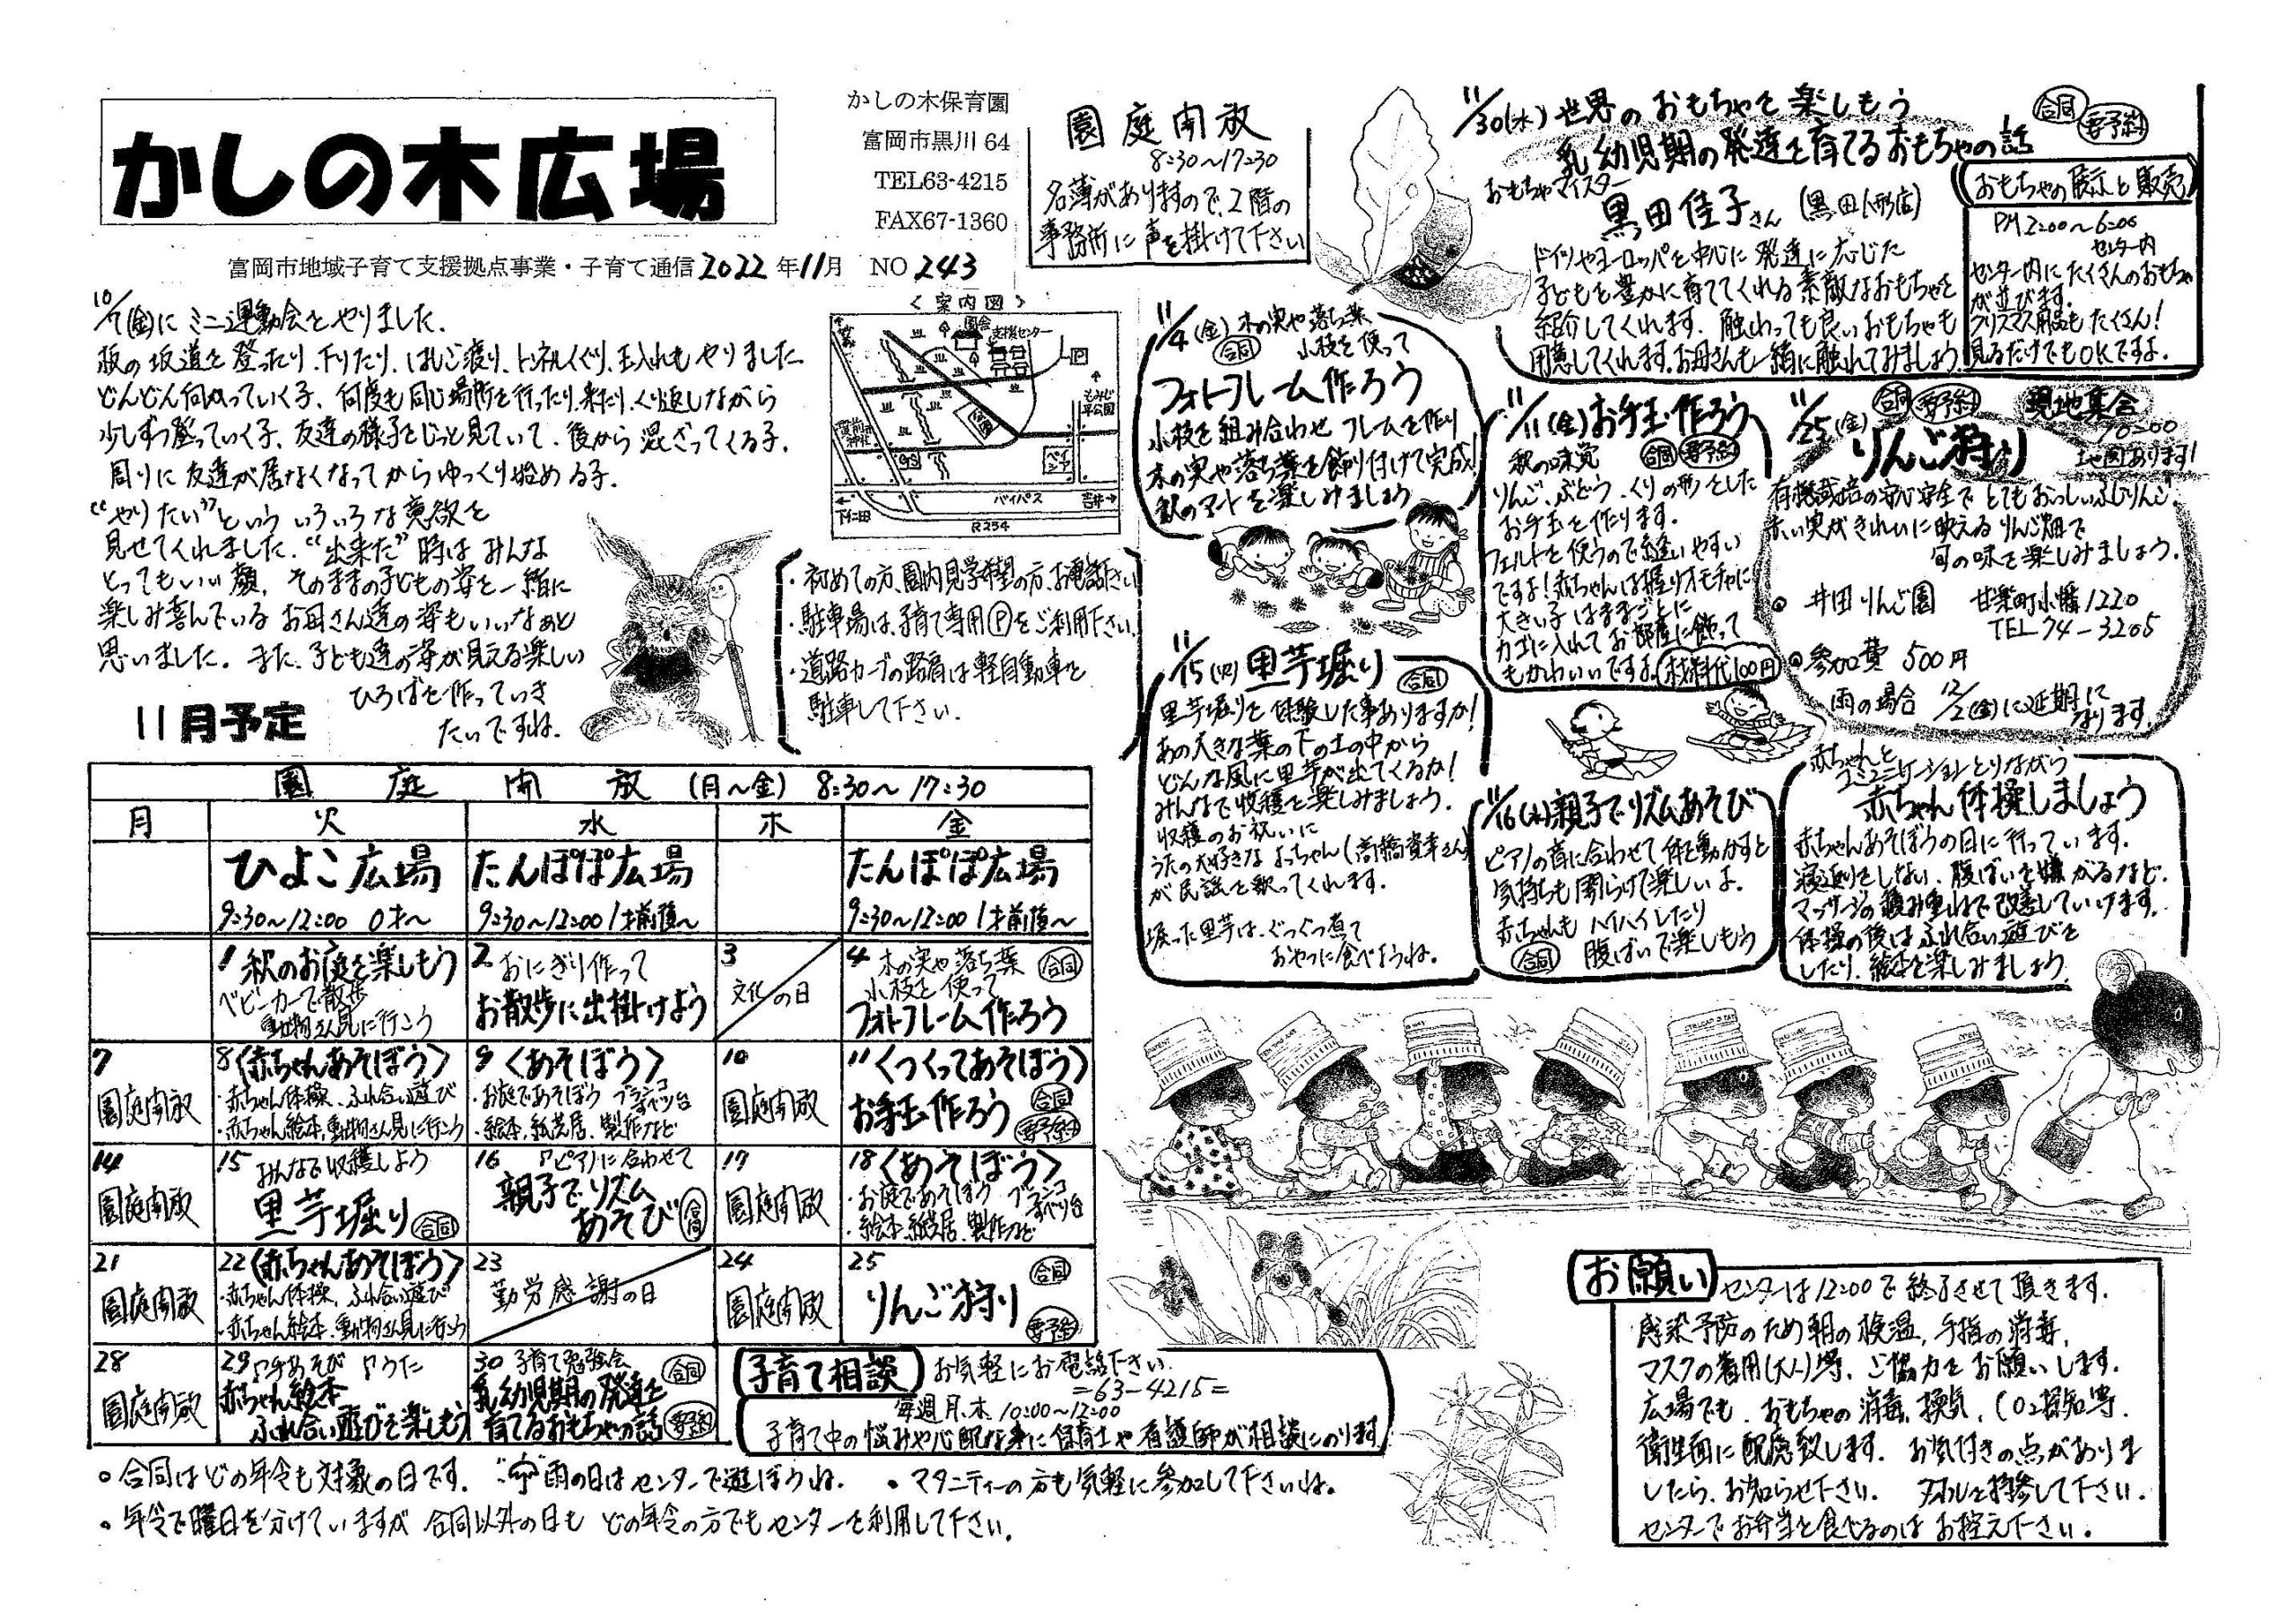 かしの木広場
かしの木保育園
富岡市黒川 64
TEL63-4215
FAX67-1360
富岡市地域子育て支援拠点事業・子育て通信 2022年11月 NO 243
園庭開放
8:30〜17:30
名簿がありますので、2階の
事務所に声を掛けて下さい
10/7(金)にミニ運動会をやりました.
板の坂道を登ったり、下りたり、はしご渡り、トンネルくぐり、玉入れもやりました.
どんどん向かっていく子、何度も同じ場所を行ったり、来たり、くり返しながら
少しずつ登っていく子、友達の様子をじっと見ていて、後から混ざってくる子.
周りに友達が居なくなってからゆっくり始める子.
“やりたい”という いろいろな意欲を
見せてくれました.“出来た”時は みんな
とってもいい顔. そのままの子どもの姿を一緒に
楽しみ喜んでいる お母さん達の姿もいいなぁと
思いました。また、子ども達の姿が見える楽しい
ひろばを作っていき
たいですね.
〈案内図〉
園舎
支援センター
P
もみじ平公園
貫前神社
バイパス
下仁田
吉井
R254
・初めての方、園内見学希望の方、お電話下さい
・駐車場は、子育て専用Pをご利用下さい.
・道路カーブの路肩は軽自動車を
駐車して下さい.
11/30(水) 世界のおもちゃを楽しもう 合同 要予約
乳幼児期の発達を育てるおもちゃの話
おもちゃマイスター
黒田佳子さん (黒田人形店)
ドイツやヨーロッパを中心に発達に応じた
子どもを豊かに育ててくれる素敵なおもちゃを
紹介してくれます. 触わっても良いおもちゃも
用意してくれます。お母さんも一緒に触れてみましょう.
おもちゃの展示と販売
PM 2:00〜6:00
センター内
センター内にたくさんのおもちゃ
が並びます.
クリスマス用品もたくさん!
見るだけでもOKですよ.
11/4(金) 木の実や落ち葉
合同 小枝を使って
フォトフレーム作ろう
小枝を組み合わせ フレームを作り
木の実や落ち葉を飾り付けて完成!
秋のアートを楽しみましょう
11/11(金) お手玉作ろう
秋の味覚 合同 要予約
りんご、ぶどう、くりの形をした
お手玉を作ります.
フェルトを使うので縫いやすい
ですよ!赤ちゃんは握りオモチャに
大きい子はままごとに
カゴに入れてお部屋に飾って
もかわいいですよ. 材料代100円
11/25(金) 合同 要予約 現地集合
10:00
地図あります!
りんご狩り
有機栽培の安心安全で とてもおいしいふじりんご
赤い実がきれいに映える りんご畑で
旬の味を楽しみましょう.
◎ 井田りんご園 甘楽町小幡1220
TEL 74-3205
◎参加費 500円
雨の場合 12/2(金)に延期に
なります.
11/15(火) 里芋堀り 合同
里芋堀りを体験した事ありますか!
あの大きな葉の下の土の中から
どんな風に里芋が出てくるか!
みんなで収穫を楽しみましょう.
収穫のお祝いに
うたの大好きな よっちゃん(高橋貴幸さん)
が民謡を歌ってくれます.
堀った里芋は、ぐつぐつ煮て
おやつに食べようね.
11/16(水) 親子でリズムあそび
ピアノの音に合わせて体を動かすと
気持ちも開らけて楽しいよ.
赤ちゃんも ハイハイしたり
合同 腹ばいで楽しもう
赤ちゃんと
コミュニケーションとりながら
赤ちゃん体操しましょう
赤ちゃんあそぼうの日に行っています.
寝返りをしない、腹ばいを嫌がるなど.
マッサージの積み重ねで改善していけます.
体操の後は ふれ合い遊びを
したり、絵本を楽しみましょう.
11月予定
園庭開放 (月〜金) 8:30〜17:30
月 火 水 木 金
ひよこ広場 たんぽぽ広場 たんぽぽ広場
9:30〜12:00 0才〜 9:30〜12:00 1才前後〜 9:30〜12:00 1才前後〜
1 秋のお庭を楽しもう
ベビーカーで散歩
動物さん見に行こう
2 おにぎり作って
お散歩に出掛けよう
3
文化の日
4 木の実や落ち葉 合同
小枝を使って
フォトフレーム作ろう
7
園庭開放
8〈赤ちゃんあそぼう〉
・赤ちゃん体操、ふれ合い遊び
・赤ちゃん絵本、動物さん見に行こう
9 〈あそぼう〉
・お庭であそぼう ブランコ
すべり台
・絵本、紙芝居、製作など
10
園庭開放
11〈つくってあそぼう〉
お手玉作ろう 合同
要予約
14
園庭開放
15 みんなで収穫しよう
里芋堀り 合同
16 ♪ピアノに合わせて
親子でリズム
あそび 合同
17
園庭開放
18〈あそぼう〉
・お庭であそぼう ブランコ
すべり台
・絵本、紙芝居、製作など
21
園庭開放
22〈赤ちゃんあそぼう〉
・赤ちゃん体操、ふれ合い遊び
・赤ちゃん絵本、動物さん見に行こう
23
勤労感謝の日
24
園庭開放
25 合同
りんご狩り
要予約
28
園庭開放
29 ♪手あそび ♪うた
赤ちゃん絵本
ふれ合い遊びを楽しもう
30 子育て勉強会 合同
乳幼児期の発達を
育てるおもちゃの話 要予約
子育て相談 お気軽にお電話下さい.
=63-4215=
毎週月、木 10:00〜12:00
子育て中の悩みや心配な事に保育士や看護師が相談にのります
◦ 合同はどの年令も対象の日です. 雨の日はセンターで遊ぼうね. ・マタニティーの方も気軽に参加して下さいね.
◦ 年令で曜日を分けていますが 合同以外の日も どの年令の方でもセンターを利用して下さい.
お願い センターは12:00で終了させて頂きます.
感染予防のため朝の検温、手指の消毒、
マスクの着用(大人)等、ご協力をお願いします.
広場でも、おもちゃの消毒、換気、CO2探知等.
衛生面に配慮致します. お気付きの点がありま
したら、お知らせ下さい. タオルを持参して下さい.
センターでお弁当を食べるのは お控え下さい.